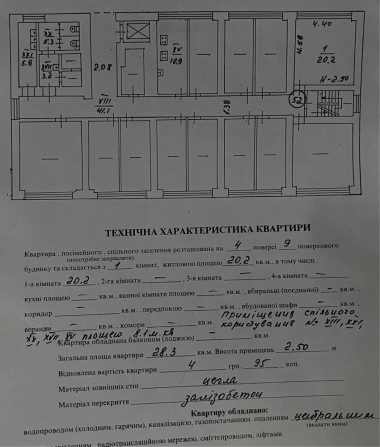 XX
5.3
XXI
5.6
XVII
3.2
2.08
XV
10.9
4.40
4.58
1
20.2
H-2.50
XVIII
41.1
1.38
52
ТЕХНІЧНА ХАРАКТЕРИСТИКА КВАРТИРИ
Квартира, посімейного, спільного заселення розташована на 4 поверсі 9 поверхового
(непотрібне закреслити)
будинку та складається з 1 кімнат, житловою площею 20,2 кв.м, в тому числі
1-а кімната 20,2, 2-га кімната —, 3-я кімната —, 4-а кімната —
кухні площею — кв.м, ванної кімнати площею — кв.м, вбиральні (поєднаної) — кв.м
коридор — кв.м, передпокою — кв.м, вбудованої шафи — кв.м
веранди — кв.м, комора кв.м Приміщення спільного
користування № XVIII, XXI,
XX, XVII, XV площею 8.1 м.кв
Квартира обладнана балконом (лоджією) кв.м
Загальна площа квартири 28.3 кв.м. Висота приміщень 2,50 м
Відновлена вартість квартири 4 грн. 95 коп.
Матеріал зовнішніх стін цегла
Матеріал перекриття залізобетон
Квартиру обладнано:
водопроводом (холодним, гарячим), каналізацією, газопостачанням, опаленням центральним
(вказати яким)
радіотрансляційною мережею, сміттєпроводом, ліфтами.